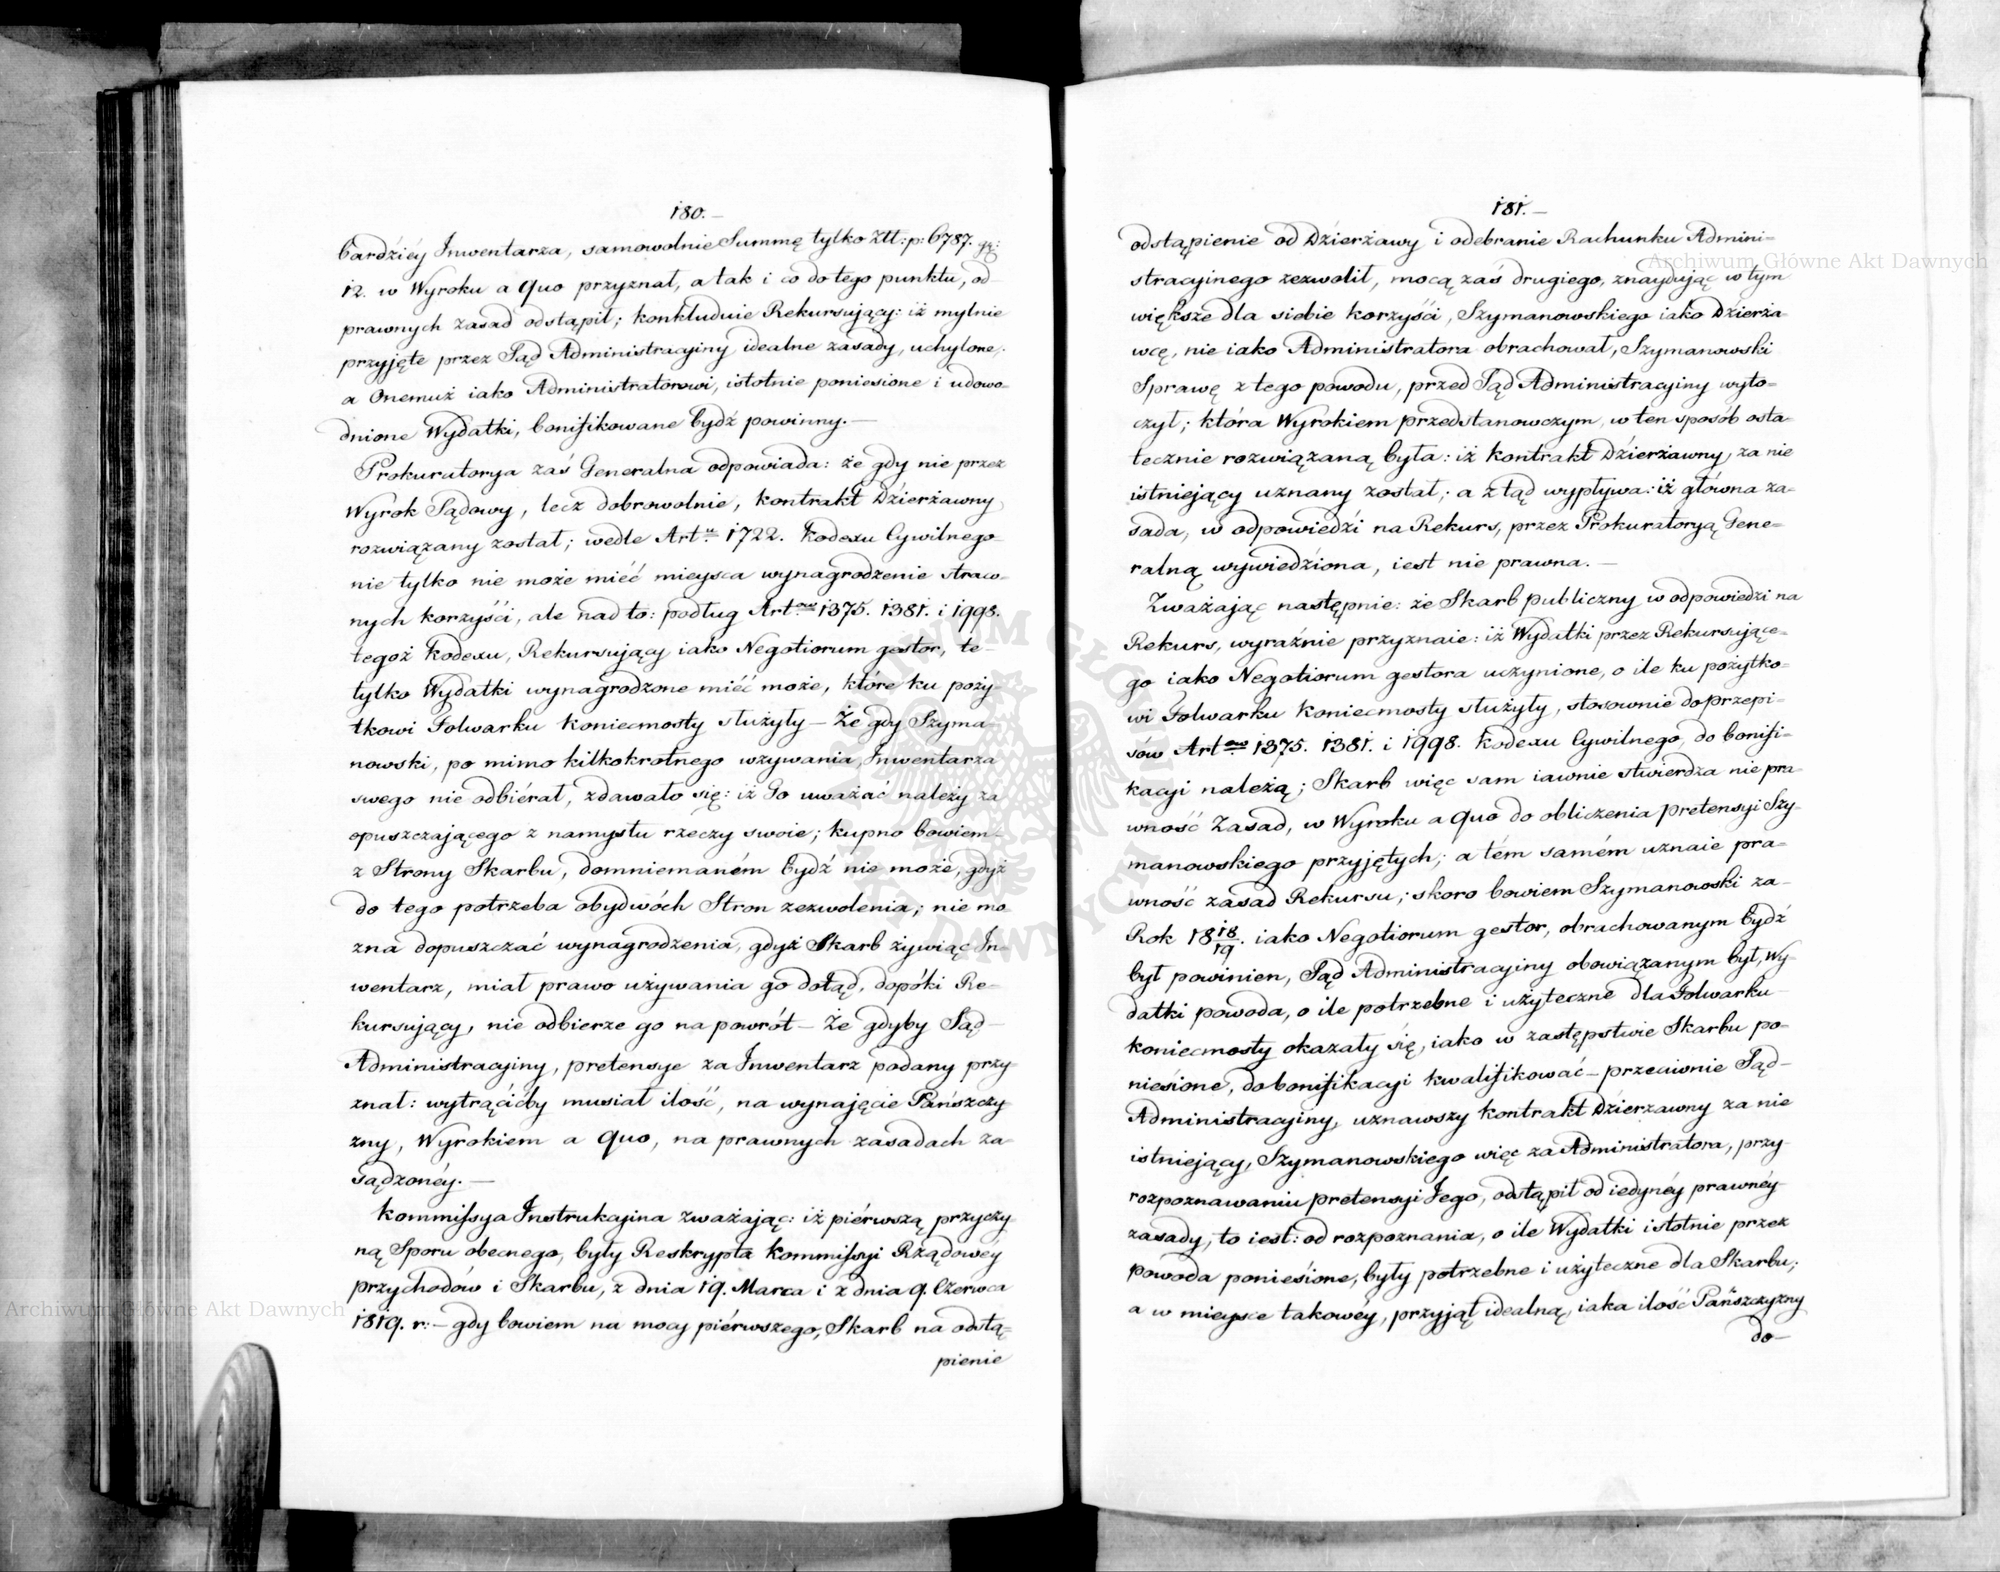 180.—
bardziéy Inwentarza, samowolnie Summę tylko Złł: p: 6787. gг:
12. w Wyroku a quo przyznał, a tak i co do tego punktu, od
prawnych zasad odstąpił; konkluduie Rekursujący: iż mylnie
przyjęte przez Sąd Administracyiny idealne zasady, uchylone,
a Onemuż iako Administratorowi, istotnie poniesione i udowo-
dnione Wydatki, bonifikowane bydź powinny.—
Prokuratorya zaś Generalna odpowiada: że gdy nie przez
Wyrok Sądowy, lecz dobrowolnie, kontrakt Dzierżawny
rozwiązany został; wedle Art.u 1722. Kodexu Cywilnego
nie tylko nie może mieć mieysca wynagrodzenie straco-
nych korzyści, ale nad to: podług Art 1375. 1381. i 1998.
tegoż Kodexu, Rekursujący iako Negotiorum gestor, te-
tylko Wydatki wynagrodzone mieć może, które ku poży-
tkowi Folwarku Koniecmosty służyły — Że gdy Szyma
nowski, po mimo kilkokrotnego wzywania Inwentarza
swego nie odbiérał, zdawało się: iż Go uważać należy za
opuszczającego z namysłu rzeczy swoie; kupno bowiem
z Strony Skarbu, domniemaném bydź nie może, gdyż
do tego potrzeba obydwóch Stron zezwolenia; nie mo
żna dopuszczać wynagrodzenia, gdyż Skarb żywiąc In-
wentarz, miał prawo używania go dotąd, dopóki Re-
kursujący, nie odbierze go na powrót — Że gdyby Sąd—
Administracyiny, pretensye za Inwentarz podany przy
znał: wytrącićby musiał ilość, na wynajęcie Pańszczy
zny, Wyrokiem a quo, na prawnych zasadach za-
sądzonéy.—
Kommissya Instrukcyina zważając: iż piérwszą przyczy
ną Sporu obecnego, były Reskrypta Kommissyi Rządowéy
przychodów i Skarbu, z dnia 19. Marca i z dnia 9. Czerwca
1819. r:— gdy bowiem na mocy piérwszego, Skarb na odstą-
pienie
181.—
odstąpienie od Dzierżawy i odebranie Rachunku Admini-
stracyinego zezwolił, mocą zaś drugiego, znaydując w tym
większe dla siebie korzyści, Szymanowskiego iako Dzierża
wcę, nie iako Administratora obrachował, Szymanowski
Sprawę z tego powodu, przed Sąd Administracyiny wyto-
czył; która Wyrokiem przedstanowczym, w ten sposób osta-
tecznie rozwiązaną była: iż kontrakt Dzierżawny, za nie
istniejący uznany został; a ztąd wypływa: iż główna za-
sada, w odpowiedzi na Rekurs, przez Prokuratoryą Gene-
ralną wywiedziona, iest nie prawna.—
Zważając następnie: że Skarb publiczny w odpowiedzi na
Rekurs, wyraźnie przyznaie: iż Wydatki przez Rekursujące-
go iako Negotiorum gestora uczynione, o ile ku pożytko-
wi Folwarku Koniecmosty służyły, stosownie do przepi-
sów Art 1375. 1381. i 1998. Kodexu Cywilnego, do bonifi-
kacyi należą; Skarb więc sam iawnie stwierdza nie pra-
wność Zasad, w Wyroku a quo do obliczenia pretensyi Szy-
manowskiego przyjętych; a tém samém uznaie pra-
wność zasad Rekursu; skoro bowiem Szymanowski za-
Rok 18 18/19. iako Negotiorum gestor, obrachowanym bydź
był powinien, Sąd Administracyiny obowiązanym był, Wy-
datki powoda, o ile potrzebne i użyteczne dla Folwarku
Koniecmosty okazały się, iako w zastępstwie Skarbu po-
niesione, do bonifikacyi kwalifikować — przeciwnie Sąd—
Administracyiny, uznawszy kontrakt Dzierżawny za nie
istniejący, Szymanowskiego więc za Administratora, przy
rozpoznawaniu pretensyi Jego, odstąpił od iedynéy prawnéy
zasady, to iest: od rozpoznania, o ile Wydatki istotnie przez
powoda poniesione, były potrzebne i użyteczne dla Skarbu;
a w mieysce takowéy, przyjął idealną, iaka ilość Pańszczyzny
do—
Archiwum Główne Akt Dawnych
Archiwum Główne Akt Dawnych
ARCHIWUM GŁÓWNE AKT DAWNYCH